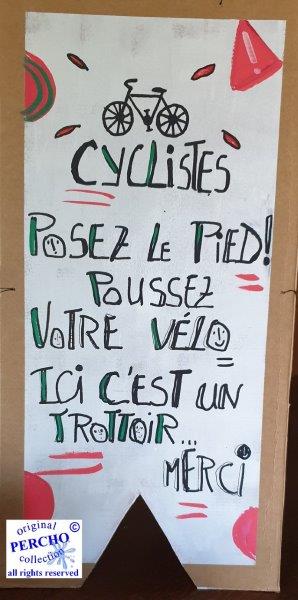 CYCLISTES
POSEZ LE PIED!
POUSSEZ
VOTRE VÉLO
ICI C'EST UN
TROTTOIR...
MERCI
original ©
PERCHO
collection
all rights reserved